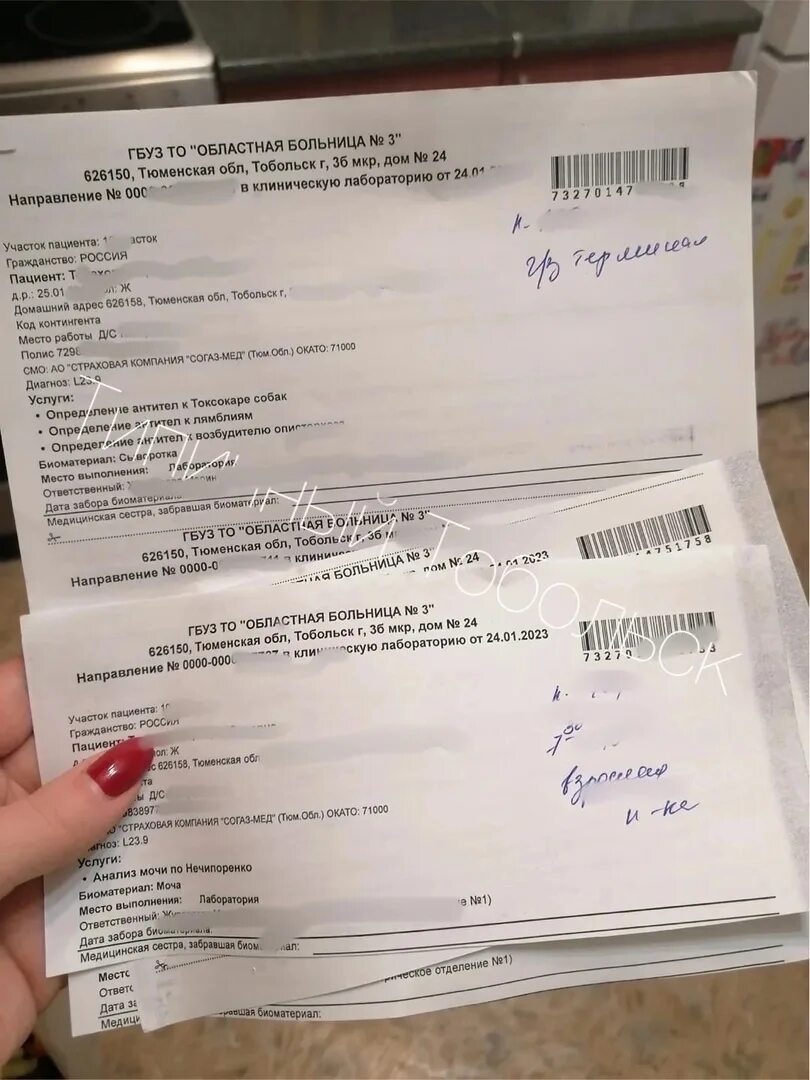 ГБУЗ ТО "ОБЛАСТНАЯ БОЛЬНИЦА № 3"
626150, Тюменская обл, Тобольск г, 3б мкр, дом № 24
Направление № 000 в клиническую лабораторию от 24.01
73270147
Участок пациента: 1 асток
Гражданство: РОССИЯ
Пациент: Т
д.р.: 25.01 Ж
Домашний адрес 626158, Тюменская обл, Тобольск г,
Код контингента
Место работы Д/С
Полис 7298
СМО: АО "СТРАХОВАЯ КОМПАНИЯ "СОГАЗ-МЕД" (Тюм.Обл.) ОКАТО: 71000
Диагноз: L23.9
Услуги:
• Определение антител к Токсокаре собак
• Определение антител к лямблиям
• Определение антител к возбудителю
Биоматериал: Сыворотка
Место выполнения: Лаборатория
Ответственный:
Дата забора биоматериала
Медицинская сестра, забравшая биоматериал:
г/з терминал
Типичный Тобольск
ГБУЗ ТО "ОБЛАСТНАЯ БОЛЬНИЦА № 3"
626150, Тюменская обл, Тобольск г, 3б
Направление № 0000-0 в клинич
4751758
БОЛЬНИЦА № 3"
дом № 24
.01.2023
ГБУЗ ТО "ОБЛАСТНАЯ БОЛЬНИЦА № 3"
626150, Тюменская обл, Тобольск г, 3б мкр, дом № 24
Направление № 0000-000 в клиническую лабораторию от 24.01.2023
7327
Участок пациента: 1
Гражданство: РОССИЯ
Пациент:
пол: Ж
с 626158, Тюменская обл
та
ы Д/С
83897
"СТРАХОВАЯ КОМПАНИЯ "СОГАЗ-МЕД" (Тюм.Обл.) ОКАТО: 71000
гноз: L23.9
Услуги:
• Анализ мочи по Нечипоренко
Биоматериал: Моча
Место выполнения: Лаборатория
Ответственный: е №1)
Дата забора биоматериала:
Медицинская сестра, забравшая биом ал:
взрослая
п-ка
Место
Ответ
Дата за
Медици
рическое отделение №1)
равшая биоматериал: